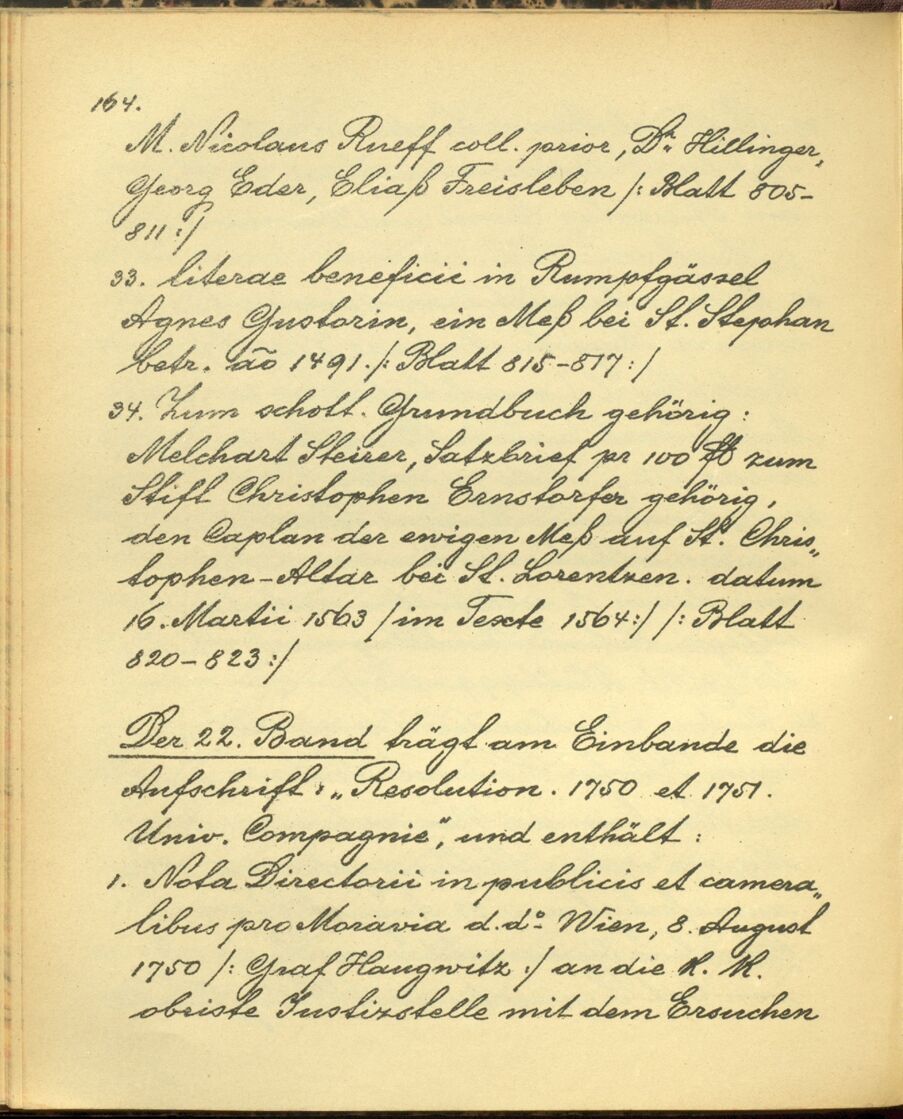 164.
M. Nicolaus Rueff coll. prior, Dr. Hillinger,
Georg Eder, Eliaß Freisleben /: Blatt 805-
811 :/
33. literae beneficii in Rumpfgässel
Agnes Gustorin, ein Meß bei St. Stephan
betr. ão 1491. /: Blatt 815-817 :/
34. Zum schott. Grundbuch gehörig:
Melchart Steirer, Satzbrief pr 100 ℔ zum
Stift Christophen Ernstorfer gehörig,
den Caplan der ewigen Meß auf St. Chris„
tophen-Altar bei St. Lorentzen. datum
16. Martii 1563 / im Texte 1564 :/ /: Blatt
820-823 :/
Der 22. Band trägt am Einbande die
Aufschrift: „Resolution. 1750 et 1751.
Univ. Compagnie", und enthält:
1. Nota Directorii in publicis et camera„
libus pro Moravia d. do. Wien, 8. August
1750 /: Graf Haugwitz :/ an die K. K.
obriste Justizstelle mit dem Ersuchen